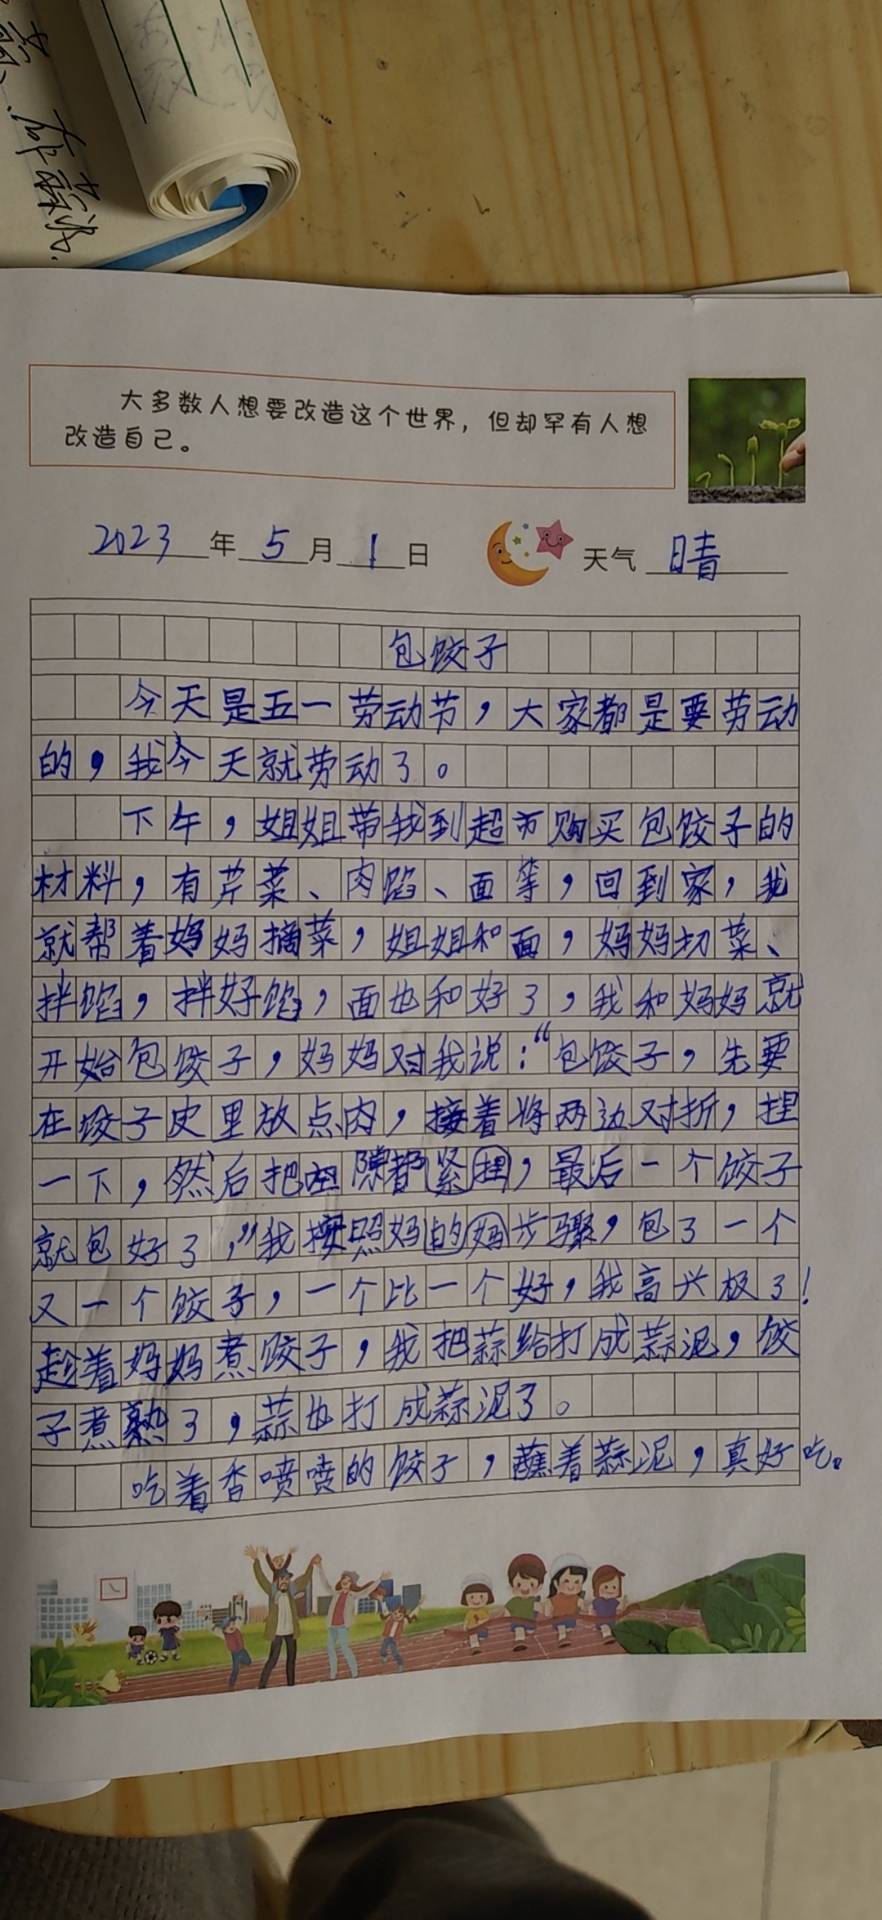 大多数人想要改造这个世界，但却罕有人想
改造自己。
2023年5月1日 天气 晴
包饺子
今天是五一劳动节，大家都是要劳动
的，我今天就劳动了。
下午，姐姐带我到超市购买包饺子的
材料，有芹菜、肉馅、面等，回到家，我
就帮着妈妈摘菜，姐姐和面，妈妈切菜、
拌馅，拌好馅，面也和好了，我和妈妈就
开始包饺子，妈妈对我说：“包饺子，先要
在饺子皮里放点肉，接着将两边对折，捏
一下，然后把空隙都紧捏，最后一个饺子
就包好了，”我按照妈的妈步骤，包了一个
又一个饺子，一个比一个好，我高兴极了！
趁着妈妈煮饺子，我把蒜给打成蒜泥，饺
子煮熟了，蒜也打成蒜泥了。
吃着香喷喷的饺子，蘸着蒜泥，真好吃。